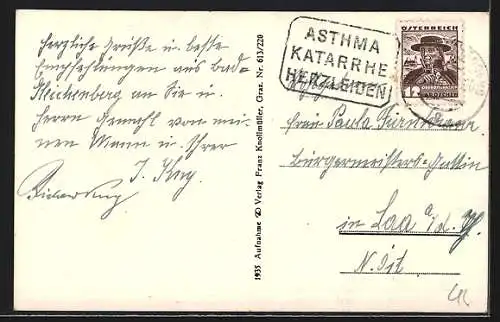 herzliche Grüße u. beste
Empfehlungen aus Bad-
Gleichenberg an Sie u.
Herrn Gemahl von mei-
nem Mann u. Ihrer
J. Kny
1935 Aufnahme Verlag Franz Knollmüller, Graz. Nr. 613/220
ASTHMA
KATARRHE
HERZLEIDEN
ÖSTERREICH
12 GROSCHEN
Frau Paula
Bürgermeisters-Gattin
in Laa a/d. Th.
N. Öst.